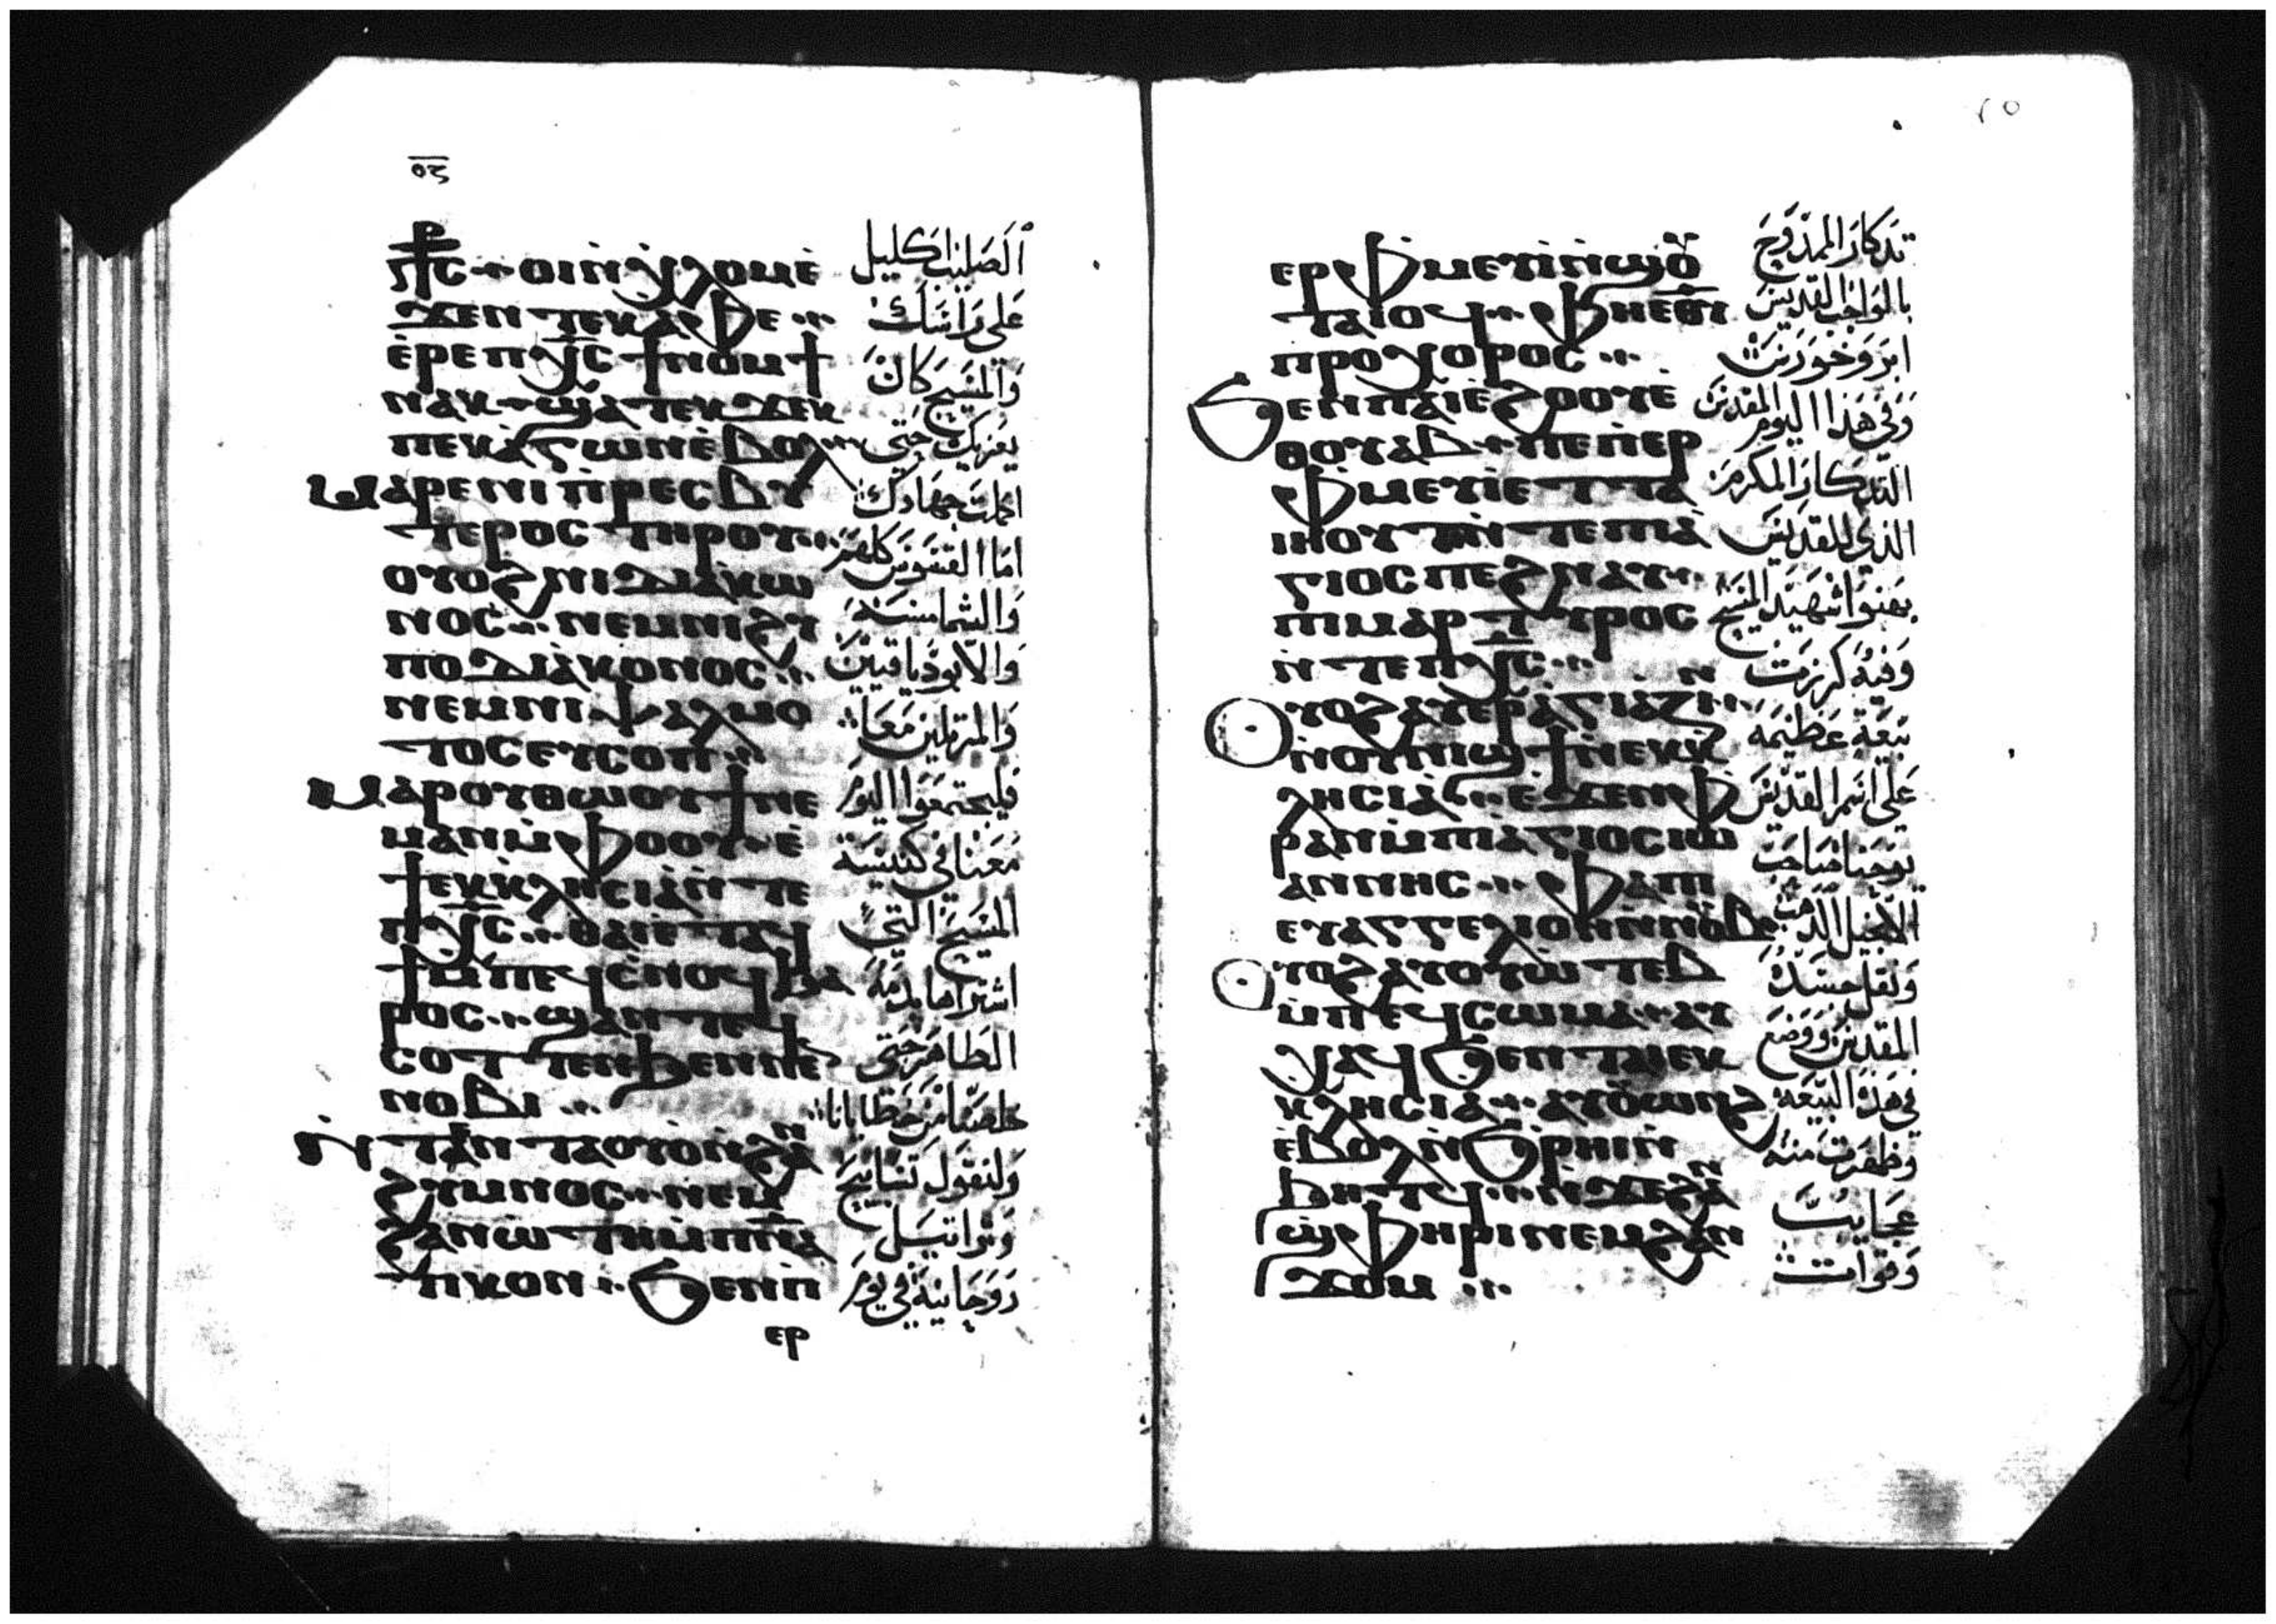 ⲡⲭⲥ ⲟⲓⲛⲭⲗⲟⲙⲉ̀
ϫⲉⲛⲧⲉⲕⲁⲫⲉ
ⲉ̀ⲣⲉⲡⲭⲥ ϯⲛⲟⲙϯ
ⲛⲁⲕ ϣⲁⲧⲉⲕϫⲉⲕ
ⲡⲉⲕⲁ̀ⲅⲱⲛⲉ̀ⲃⲟⲗ
ⲙⲁⲣⲉⲛⲓⲡ̀ⲣⲉⲥⲃⲩ
ⲧⲉⲣⲟⲥ ⲧⲏⲣⲟⲩ
ⲟⲩⲟϩ ⲛⲓⲇⲓⲁ̀ⲕⲱ
ⲛⲟⲥ ⲛⲉⲙⲛⲓϩⲩ
ⲡⲟⲇⲓⲁ̀ⲕⲟⲛⲟⲥ
ⲛⲉⲙⲛⲓⲯⲁⲗⲙⲟ
ⲧⲟⲥ ⲉⲩⲥⲟⲡ
ⲙⲁⲣⲟⲩⲑⲱⲟⲩϯⲛⲉ
ⲙⲁⲛⲙ̀ⲫⲟⲟⲩ ⲉ̀
ϯⲉⲕⲕⲗⲏⲥⲓⲁ̀ⲛ̀ⲧⲉ
ⲡⲭⲥ ⲑⲁⲓⲉⲧⲁϥ
ϣⲟⲡⲥ
ⲣⲟⲥ ϣⲁⲛⲧⲉϥ
ⲥⲟⲧⲧⲉⲛϧⲉⲛⲛⲉ
ⲛⲟⲃⲓ
ⲛ̀ⲧⲁⲛⲧⲁⲟⲩⲟ̀ⲛ̀ϩⲁⲛ
ϩⲩⲙⲛⲟⲥ ⲛⲉⲙ
ϩⲁⲛⲱ̀ⲇⲏⲙ̀ⲡⲛⲁ
ⲧⲓⲕⲟⲛ ϧⲉⲛⲡ
ⲉⲣ
الصليب اكليل
على راسك
والمسيح كان
يعزيك حتى
اكملت جهادك
اما القسوس كلهم
والشمامسة
والابودياقنيين
والمرتلين معا
فليجتمعوا اليوم
معنا في كنيسة
المسيح التي
اشتراها بدمه
الطاهر حتى
خلصنا من خطايانا
ولنقول تسابيح
وتراتيل
روحانية في يوم
٢٥
ⲉⲣⲫⲙⲉⲩⲓ̀ⲛ̀ϣⲟⲩ
ⲧⲁⲓⲟϥ ⲙ̀ⲫⲏⲉⲑⲩ
ⲡⲣⲟⲭⲟⲣⲟⲥ
ϧⲉⲛⲡⲁⲓⲉ̀ϩⲟⲟⲩⲉ̀
ⲑⲟⲩⲁⲃ ⲛⲉⲡⲉⲣ
ⲫⲙⲉⲩⲓ̀ⲉⲧⲧⲁ
ⲓⲏⲟⲩⲧ ⲛ̀ⲧⲉⲡⲁ̀
ⲅⲓⲟⲥ ⲡⲉϩⲛⲁⲩ
ⲡⲓⲙⲁⲣⲧⲩⲣⲟⲥ
ⲛ̀ⲧⲉⲡⲭⲥ
ⲟⲩⲟϩ ⲁⲩⲉⲣⲁ̀ⲅⲓⲁⲍⲓⲛ
ⲛ̀ⲟⲩⲛⲓϣϯⲛⲉⲕⲕ
ⲗⲏⲥⲓⲁ̀ ⲉ̀ϫⲉⲛⲫ
ⲣⲁⲛⲙ̀ⲡⲓⲁ̀ⲅⲓⲟⲥ ⲓⲱ
ⲁⲛⲛⲏⲥ ⲫⲁⲡⲓ
ⲉⲩⲁⲅⲅⲉⲗⲓⲟⲛⲛ̀ⲛⲟⲩⲃ
ⲟⲩⲟϩ ⲁⲩⲟⲩⲱ̀ⲧⲉⲃ
ⲙ̀ⲡⲉϥⲥⲱⲙⲁ ⲁⲩ
ⲭⲁϥ ϧⲉⲛⲧⲁⲓⲉⲕ
ⲕⲗⲏⲥⲓⲁ̀ ⲁⲩⲟⲩⲱⲛϩ
ⲉ̀ⲃⲟⲗⲛ̀ϧⲣⲏⲓⲛ̀
ϧⲏⲧϥ ⲛ̀ϫⲉϩⲁⲛ
ϣⲫⲏⲣⲓ ⲛⲉⲙϩⲁⲛ
ϫⲟⲙ
تذكار الممدوح
بالواجب القديس
ابروخورس
وفي هذا اليوم المقدس
التذكار المكرم
الذي للقديس
بهنوا شهيد المسيح
وفيه كرزت
بيعة عظيمه
على اسم القديس
يوحنا صاحب
الانجيل الذهب
ونقل جسده
المقدس ووضع
في هذه البيعه
وظهرت منه
عجايب
وقوات